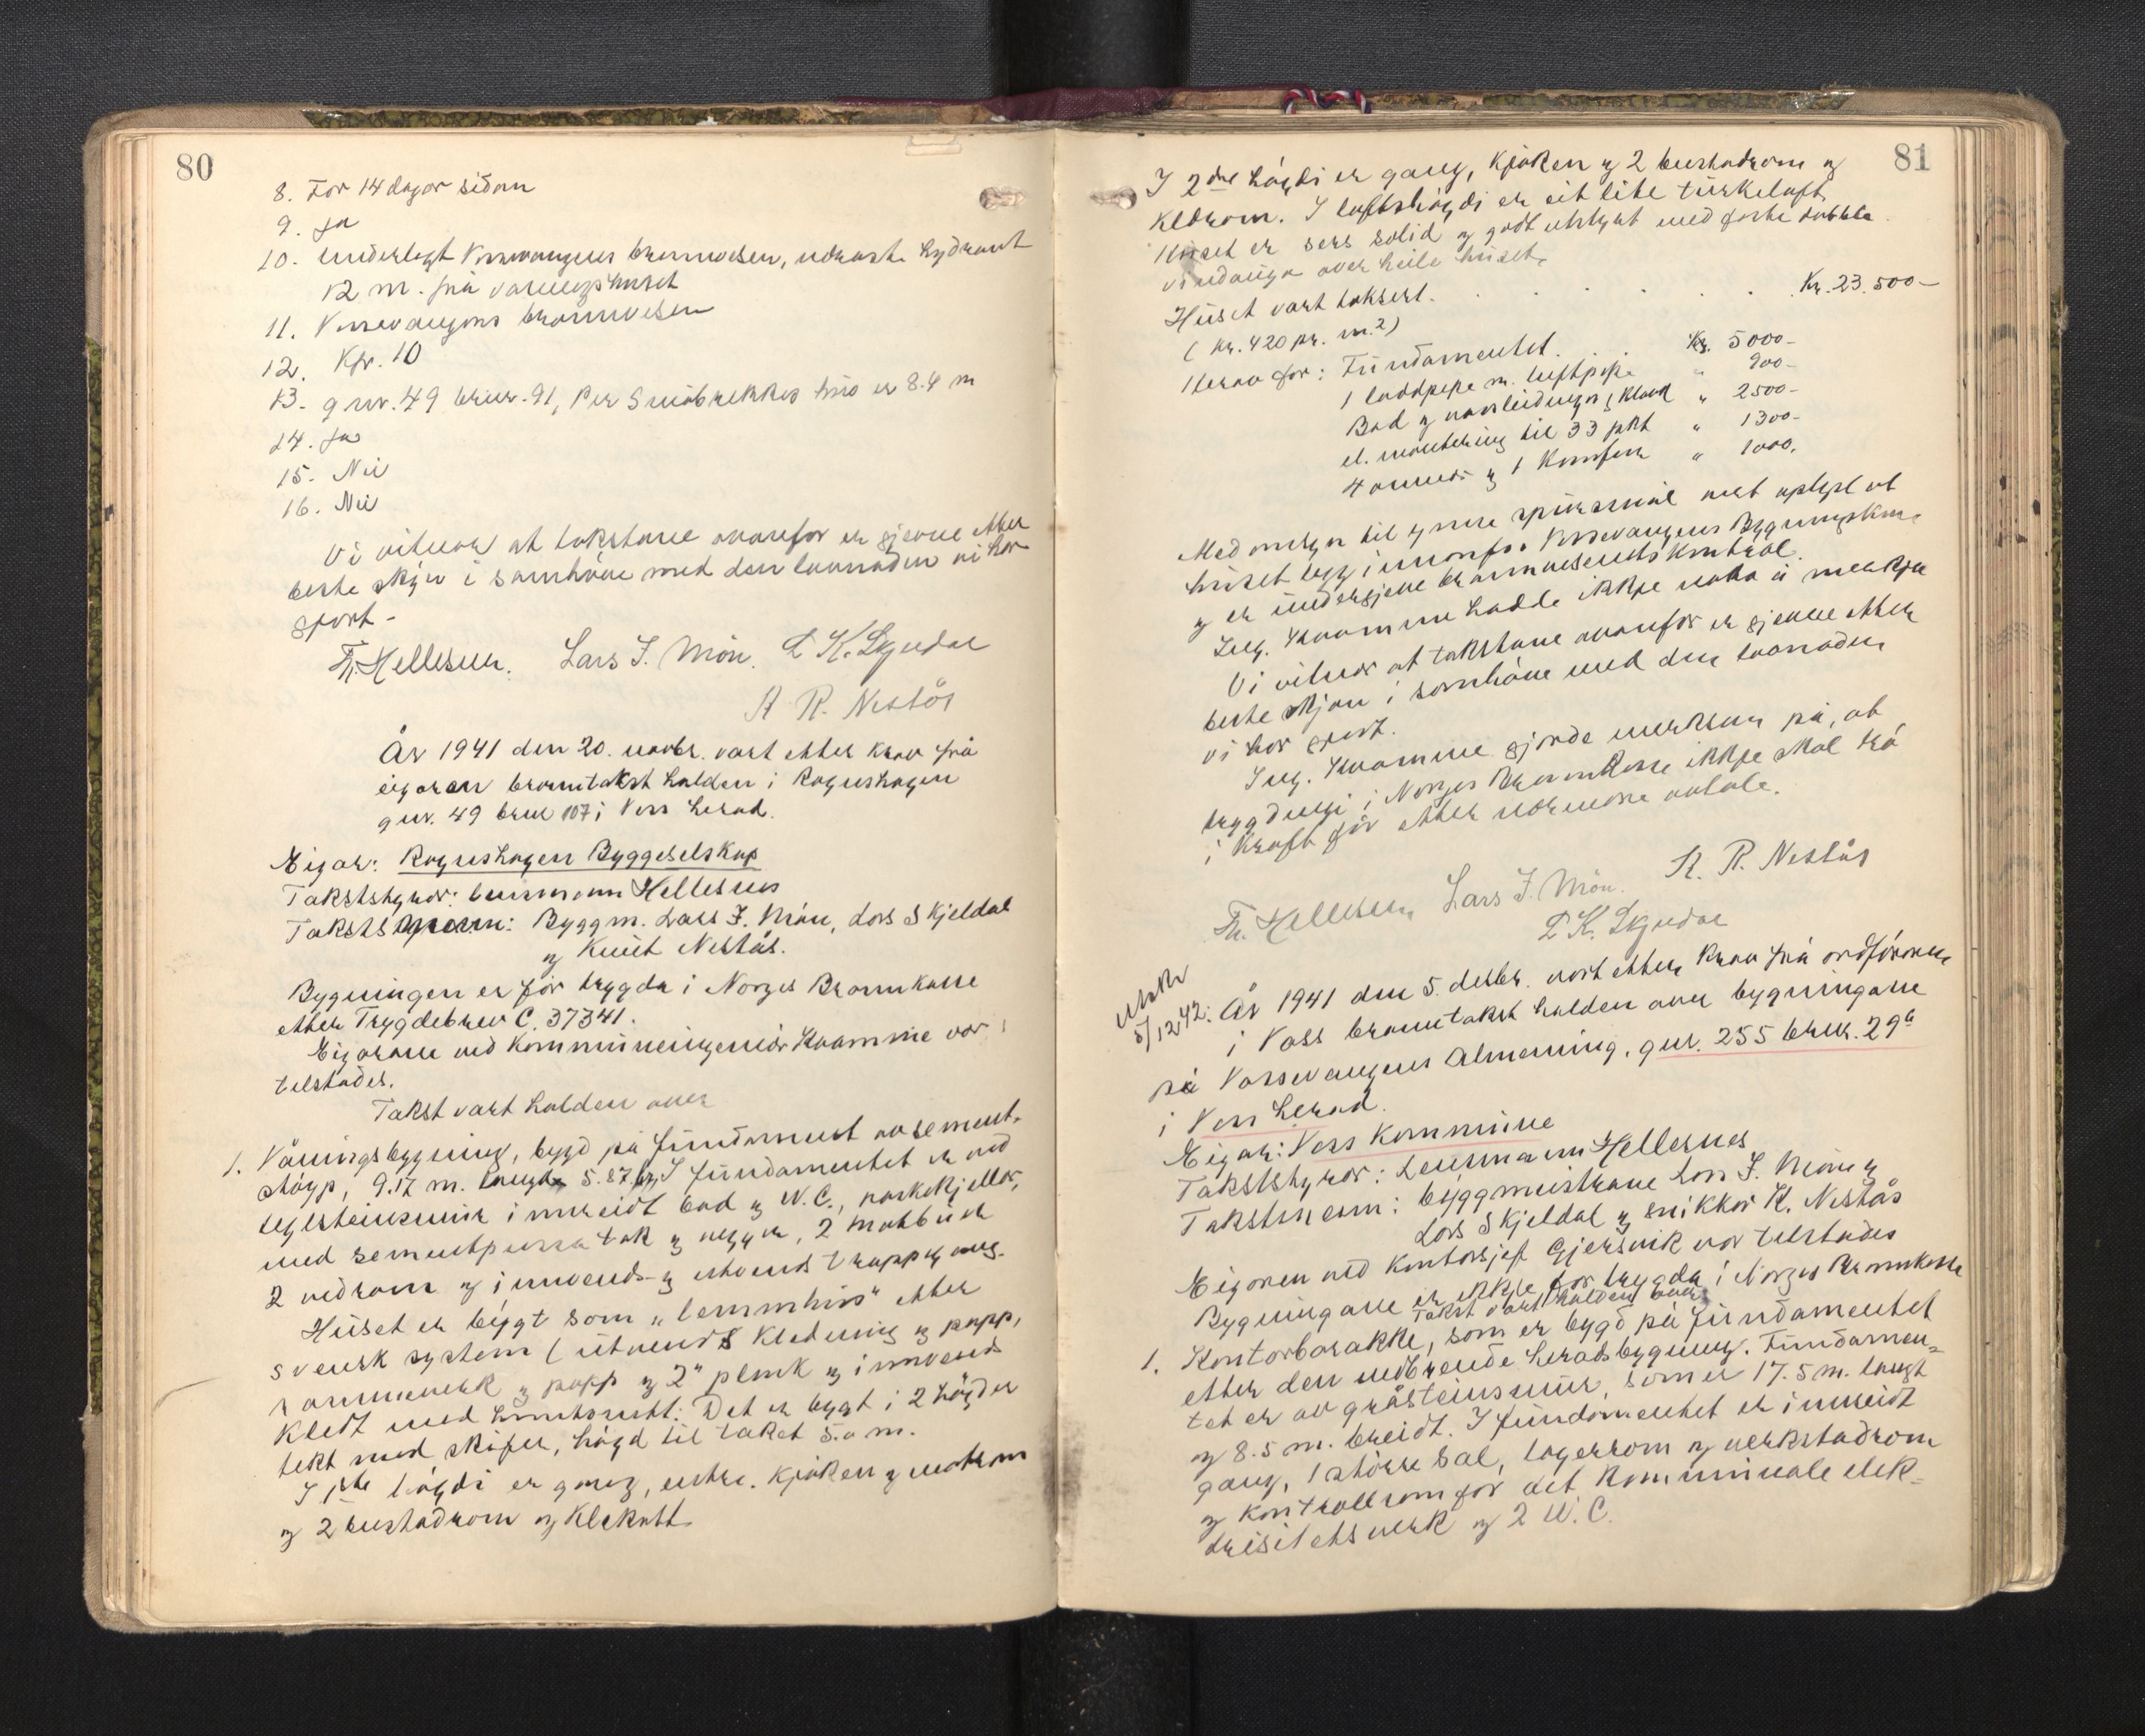 80
8. For 14 dagar sidan
9. Ja
10. Underlagt Vossevangens brannvesen, næraste hydrant
12 m. frå våningshuset
11. Vossevangens brannvesen
12. Kpr. 10
13. gnr. 49 brnr. 91, Per Småbrekkes hus er 8.4 m
14. Ja
15. Nei
16. Nei
Vi vitnar at takstane ovanfor er gjevne etter
beste skjøn i samhøve med den lovnaden vi har
gjort -
Th. Hellesnes. Lars J. Møn. L K. Skjeldal
K R. Nestås
År 1941 den 20. novbr. vart etter krav frå
eigaren branntakst halden i Rognshagen
gnr. 49 bruk 107 i Voss herad.
Eigar: Rognshagen Byggeselskap
Takststyrar: lensmann Hellesnes
Takstsmenn: Byggm. Lars J. Møn, Lars Skjeldal
og Knut Nestås.
Bygningen er før trygda i Norges Brannkasse
etter Trygdebrev C. 37341.
Eigarane ved kommuneingeniør Kvamme var
telstades.
Takst vart halden over
1. Våningsbygning, bygd på fundament av sement-
støyp, 9.17 m. lang 5.87 br. I fundamentet er ved
teglsteinsmur innreidt bad og W.C., vaskekjellar,
med sementpussa tak og vegger, 2 matbuer
2 vedrom og innvends- og utvends trappgang.
Huset er bygt som "lemmhus" etter
svensk system (utvends kledning og papp,
rammeverk og papp og 2" plank og innvends
kledt med huntonitt. Det er bygt i 2 høgder
tekt med skifer, høgd til taket 5.0 m.
I 1ste høgdi er gang, entre. kjøken og matrom
og 2 bustadrom og klekott
81
I 2dre høgdi er gang, kjøken og 2 bustadrom og
kledrom. I loftshøgdi er eit lite turkeloft.
Huset er sers solid og godt utstyrt med faste dubble
vindauga over heile huset.
Huset vart taksert. . . . . . . Kr. 23.500-
( kr. 420 pr. m.2)
Herav for: Fundamentet. Kr. 5000-
1 loddpipe m. luftpipe " 900-
Bad og vassleidninga, kloakk " 2500-
el. montering til 33 pkt " 1300-
4 omnar og 1 komfyr " 1000.
Med omsyn til ymse spursmål vert opplyst at
huset ligg innanfor Vossevangens Bygningskom.
og er undergjeve brannvesenets kontroll.
Ing. Kvamme hadde ikkje noko å merkja
Vi vitnar at takstane ovanfor er gjevne etter
beste skjøn i samhøve med den lovnaden
vi har gjort.
Ing. Kvamme gjorde merksam på, at
trygdingi i Norges Brannkasse ikkje skal trå
i kraft før etter nærmare avtale.
Th. Hellesnes Lars J. Møn. K. R. Nestås
L K. Skjeldal
5/12 42. År 1941 den 5. desbr. vart etter krav frå ordføraren
i Voss branntakst halden over bygningane
på Vossevangens Almenning, gnr. 255 brnr. 29a
i Voss herad.
Eigar: Voss Kommune
Takststyrar: Lensmann Hellesnes
Takstmenn: byggmeistrane Lars J. Møn og
Lars Skjeldal og snikkar K. Nestås
Eigaren ved kontorsjef Gjersvik var telstades
Bygningane er ikkje før trygda i Norges Brannkasse
Takst vart halden over
1. Kontorbarakke, som er bygd på fundamentet
etter den nedbrende heradsbygning. Fundamen-
tet er av gråsteinsmur, som er 17.5 m. langt
og 8.5 m. breidt. I fundamentet er innreidt
gang, 1 større sal, lagerrom og verkstadrom
og kontrollrom for det kommunale elek-
trisitetsverk og 2 W.C.